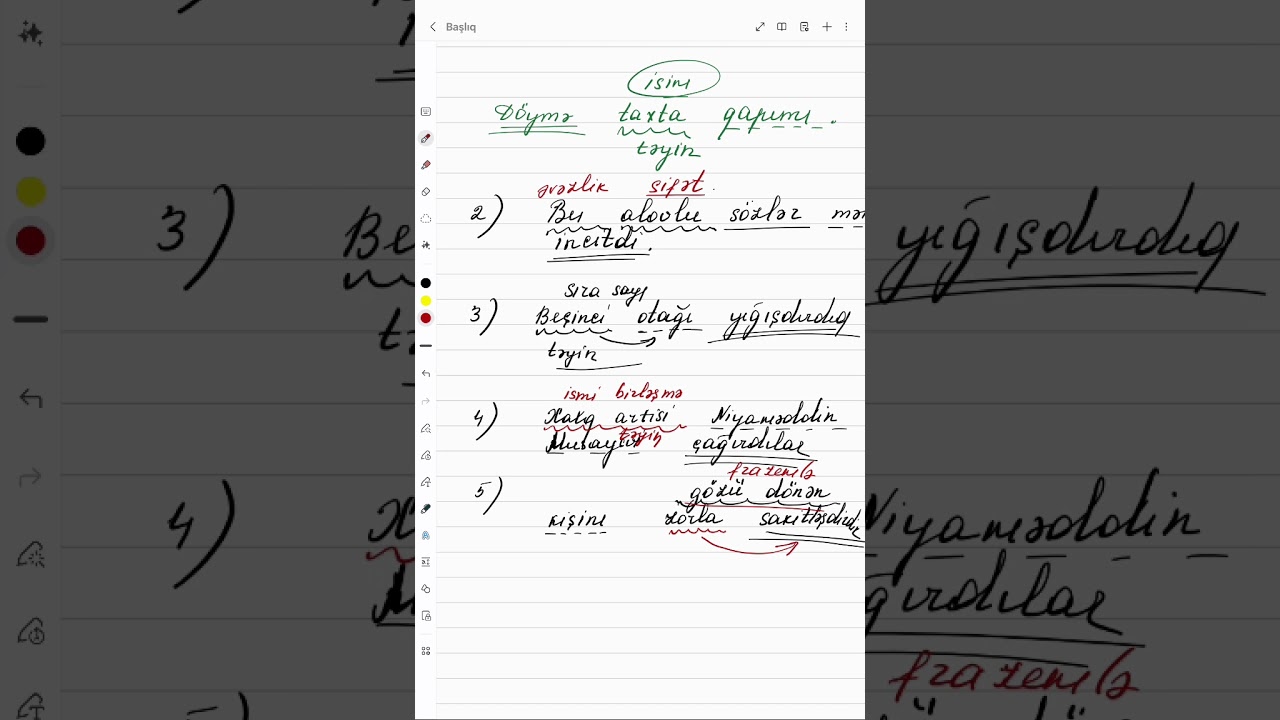 Başlıq
isim
Döymə taxta qapımı.
təyin
əvəzlik sifət.
2) Bu alovlu sözlər mə
incitdi.
sıra sayı
3) Beşinci otağı yığışdırdıq
təyin
ismi birləşmə
4) Xalq artisi Niyaməddin
təyin
Musayevi çağırdılar
frazemlə
5) gözü dönən
kişini zorla sakitləşdirdi